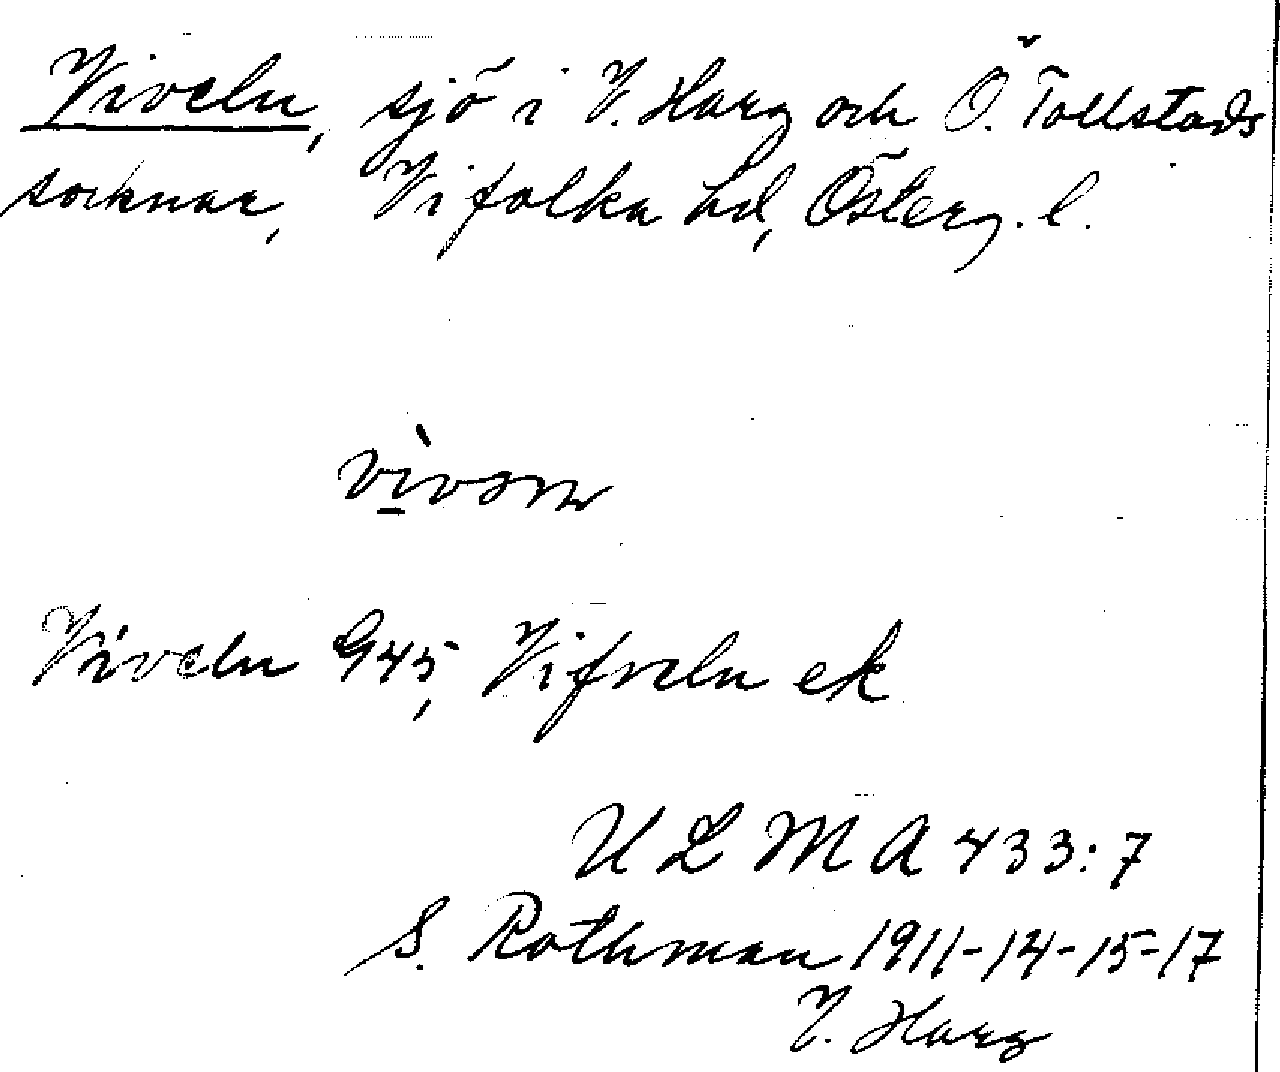 Viveln, sjö i V. Harg och Ö. Tollstads
socknar, Vifolka hd, Österg. l.
Viveln G45, Vifveln ek
U L M A 433:7
S. Rothman 1911-14-15-17
V. Harg